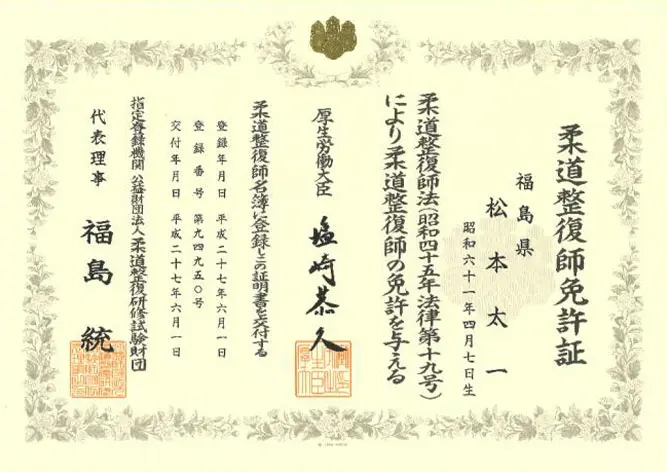 柔道整復師免許証
福島県
松本太一
昭和六十一年四月七日生
柔道整復師法(昭和四十五年法律第十九号)
により柔道整復師の免許を与える
厚生労働大臣 塩崎恭久
柔道整復師名簿に登録しこの証明書を交付する
登録年月日 平成二十七年六月一日
登録番号 第九四九五〇号
交付年月日 平成二十七年六月一日
指定登録機関 公益財団法人柔道整復研修試験財団
代表理事 福島統